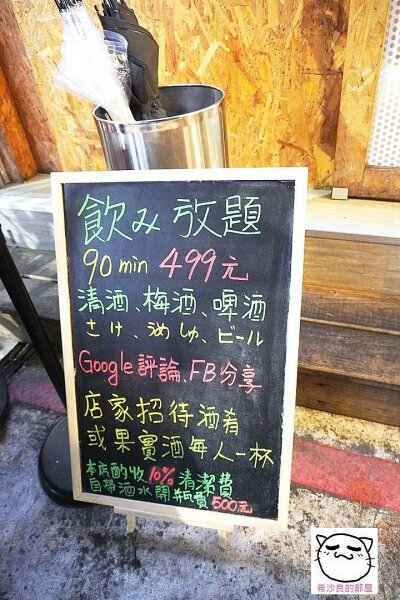 飲み放題
90 min 499元
清酒、梅酒、啤酒
さけ、うめしゅ、ビール
Google評論、FB分享
店家招待酒肴
或果實酒每人一杯
本店酌收10%清潔費
自帶酒水開瓶費500元
希沙良的部屋